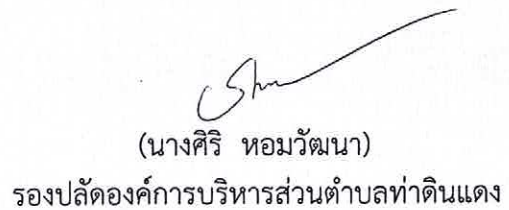 (นางศิริ หอมวัฒนา)
รองปลัดองค์การบริหารส่วนตำบลท่าดินแดง